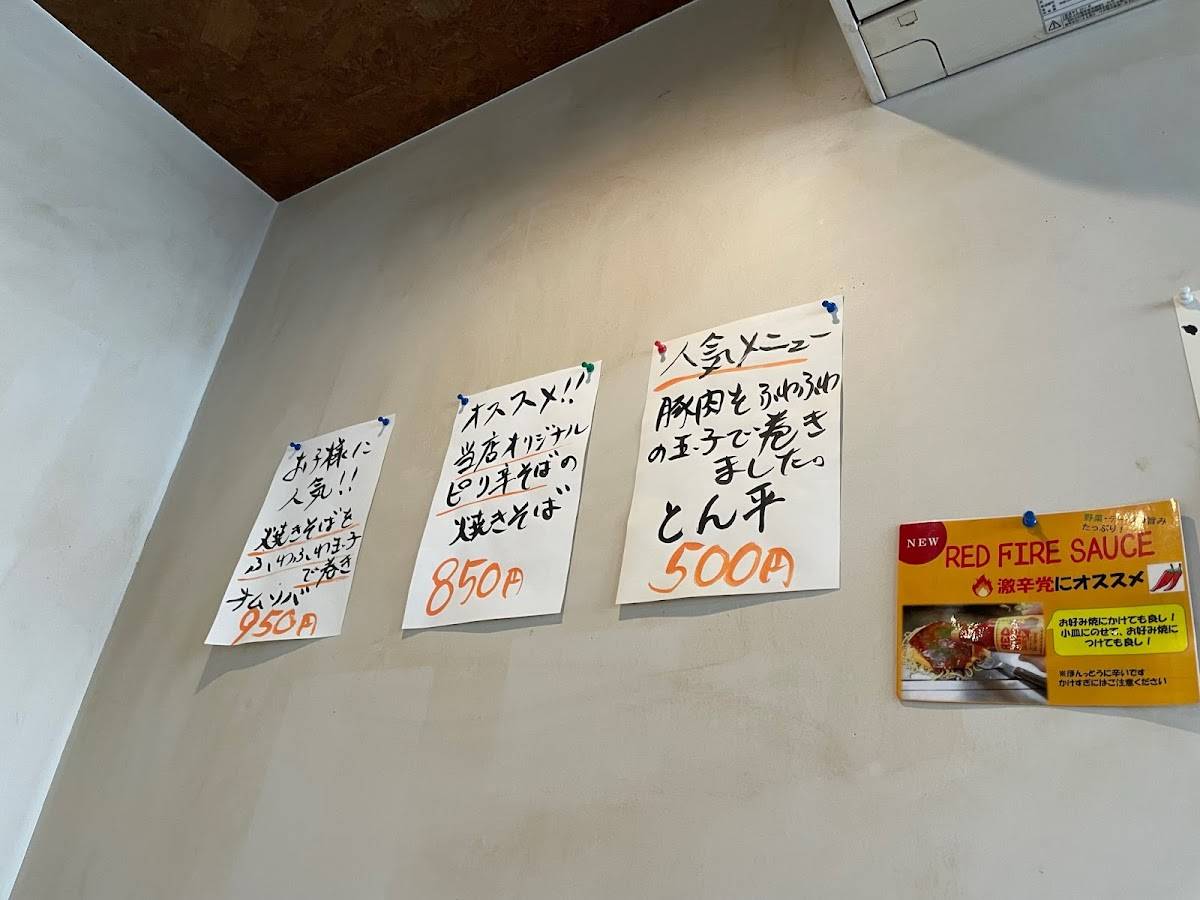 お子様に
人気!!
焼きそばを
ふわふわ玉子
で巻き
オムソバ
950円
オススメ!!
当店オリジナル
ピリ辛そばの
焼きそば
850円
人気メニュー
豚肉をふわふわ
の玉子で巻き
ました。
とん平
500円
NEW
野菜・
旨み
たっぷり!
RED FIRE SAUCE
激辛党にオススメ
お好み焼にかけても良し!
小皿にのせて、お好み焼に
つけても良し!
※ほんっとうに辛いです
かけすぎにはご注意ください